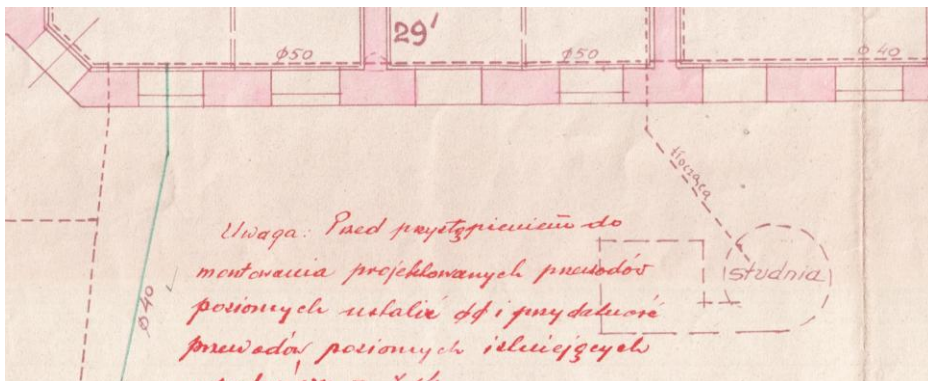 29'
ø50
ø50
ø 40
tłocząca
Uwaga: Przed przystąpieniem do
montowania projektowanych przewodów
studnia
ø 40
poziomych ustalić øø i przydatność
przewodów poziomych istniejących